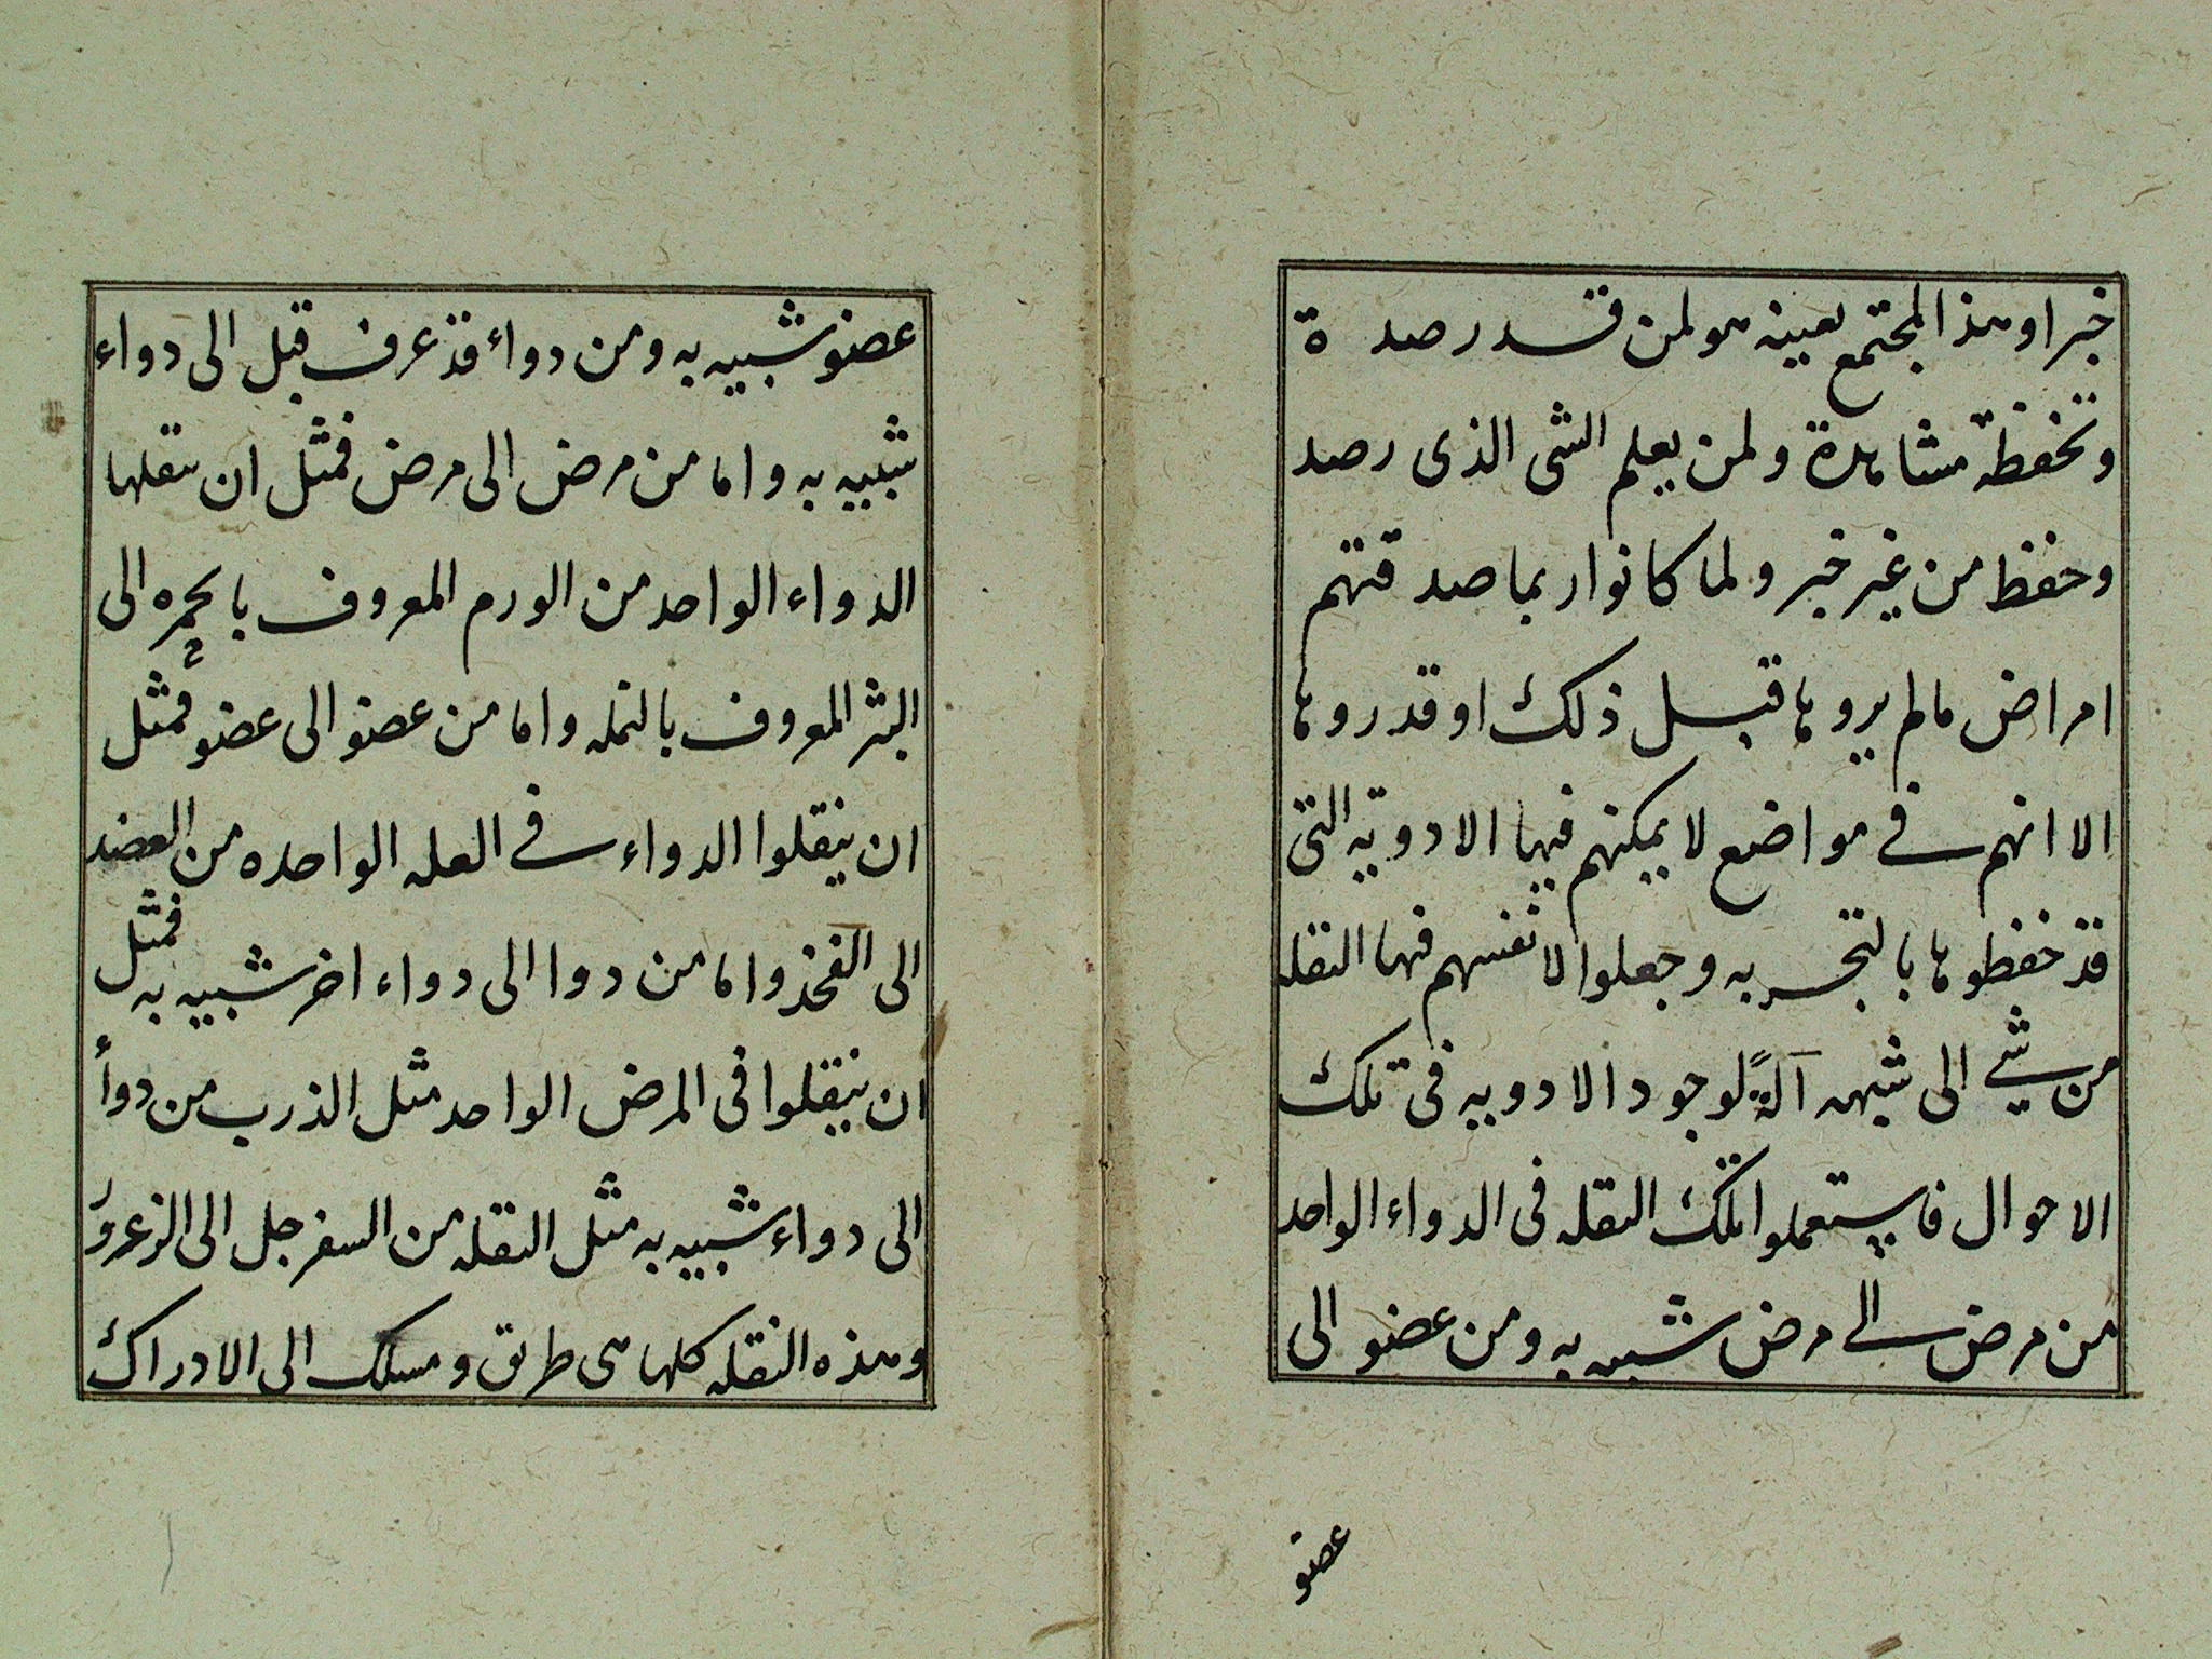 خبرا وهذا المجتمع بعينه هو لمن قد رصد ة
وتحفظة مشاهدة ولمن يعلم الشى الذى رصد
وحفظ من غير خبر ولما كانوا ربما صدقتهم
امراض مالم يروها قبل ذلك او قد روها
الا انهم فے مواضع لا يمكنهم فيها الادوية التى
قد حفظوها بالتجربه وجعلوا لانفسهم فيها النقله
من شے الى شبهه آلةً لوجود الادويه فى تلك
الاحوال فاستعملوا تلك النقله فى الدواء الواحد
من مرض الے مرض شبيه به ومن عضو الى
عضو
عضو شبيه به ومن دواء قد عرف قبل الى دواء
شبيه به واما من مرض الى مرض فمثل ان ينقلها
الدواء الواحد من الورم المعروف بالحمره الى
البثر المعروف بالنمله واما من عضو الى عضو فمثل
ان ينقلوا الدواء فے العله الواحده من العضد
الى الفخذ واما من دوا الى دواء اخر شبيه به فمثل
ان ينقلوا فى المرض الواحد مثل الذرب من دوأ
الى دواء شبيه به مثل النقله من السفرجل الى الزعرور
وهذه النقله كلها هى طريق ومسلك الى الادراك